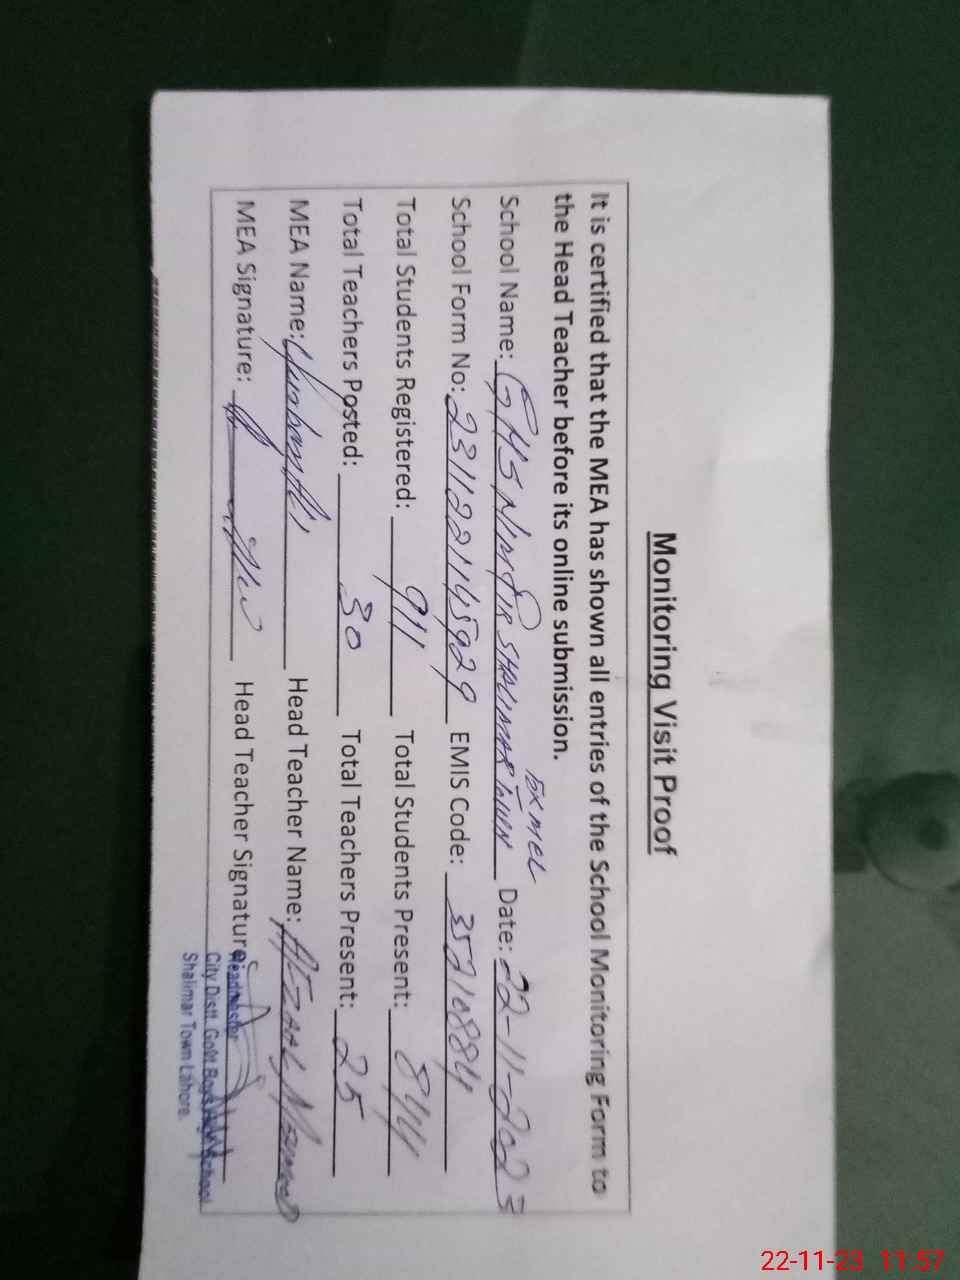 Monitoring Visit Proof
It is certified that the MEA has shown all entries of the School Monitoring Form to
the Head Teacher before its online submission.
School Name: GHS SHALIMAR TOWN Date: 22-11-2023
School Form No: EMIS Code: 35210884
Total Students Registered: 911 Total Students Present: 844
Total Teachers Posted: 30 Total Teachers Present: 25
MEA Name: Head Teacher Name: AFZAAL
MEA Signature: Head Teacher Signature:
Headmaster
City Distt. Govt. Boys High School
Shalimar Town Lahore.
22-11-23 11:57